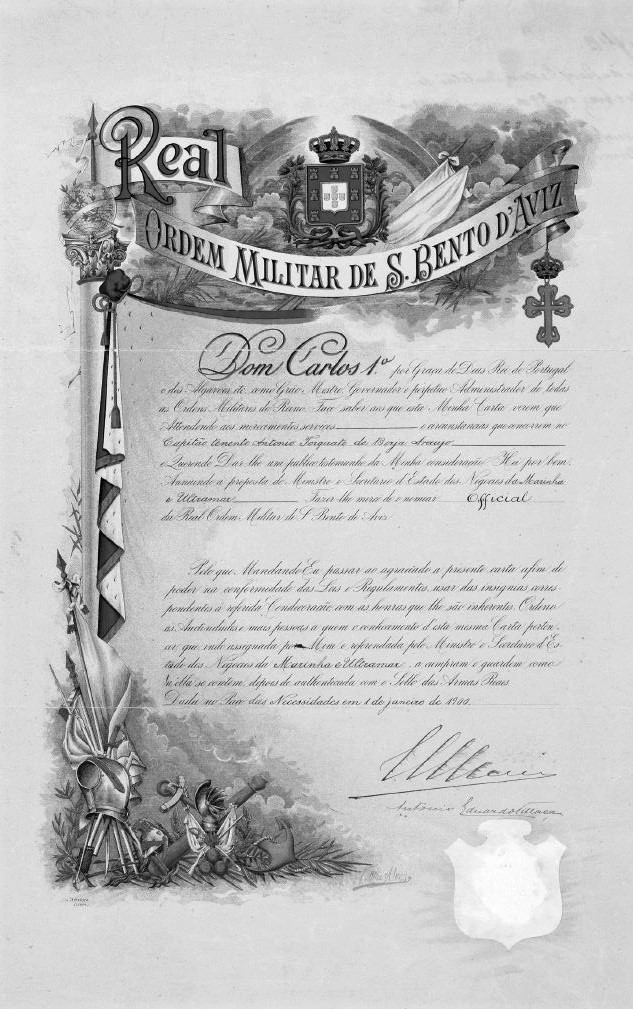 Real
ORDEM MILITAR DE S. BENTO D'AVIZ
Dom Carlos 1.º por Graça de Deus Rei de Portugal
e dos Algarves etc. como Grão Mestre, Governador e perpetuo Administrador de todas
as Ordens Militares do Reino. Faço saber aos que esta Minha Carta virem que
Attendendo aos merecimentos serviços e circunstancias que concorrem no
Capitão tenente Antonio Torquato de Borja Araujo
e Querendo Dar-lhe um publico testimunho da Minha consideração: Hei por bem,
Annuindo á proposta do Ministro e Secretario d'Estado dos Negocios da Marinha
e Ultramar Fazer-lhe mercê de o nomear Official
da Real Ordem Militar de S. Bento de Aviz
Pelo que, Mandando Eu passar ao agraciado a presente carta afim de
poder na conformidade das Leis e Regulamentos, usar das insignias corres-
pondentes á referida Condecoração com as honras que lhe são inherentes. Ordeno
ás Auctoridades e mais pessoas a quem o conhecimento d'esta mesma Carta perten-
cer, que indo assignada por Mim e referendada pelo Ministro e Secretario d'Es-
tado dos Negocios da Marinha e Ultramar, a cumpram e guardem como
n'ella se contém, depois de authenticada com o Sello das Armas Reaes.
Dada no Paço das Necessidades em 1 de janeiro de 1900.
Antonio Eduardo Villaça